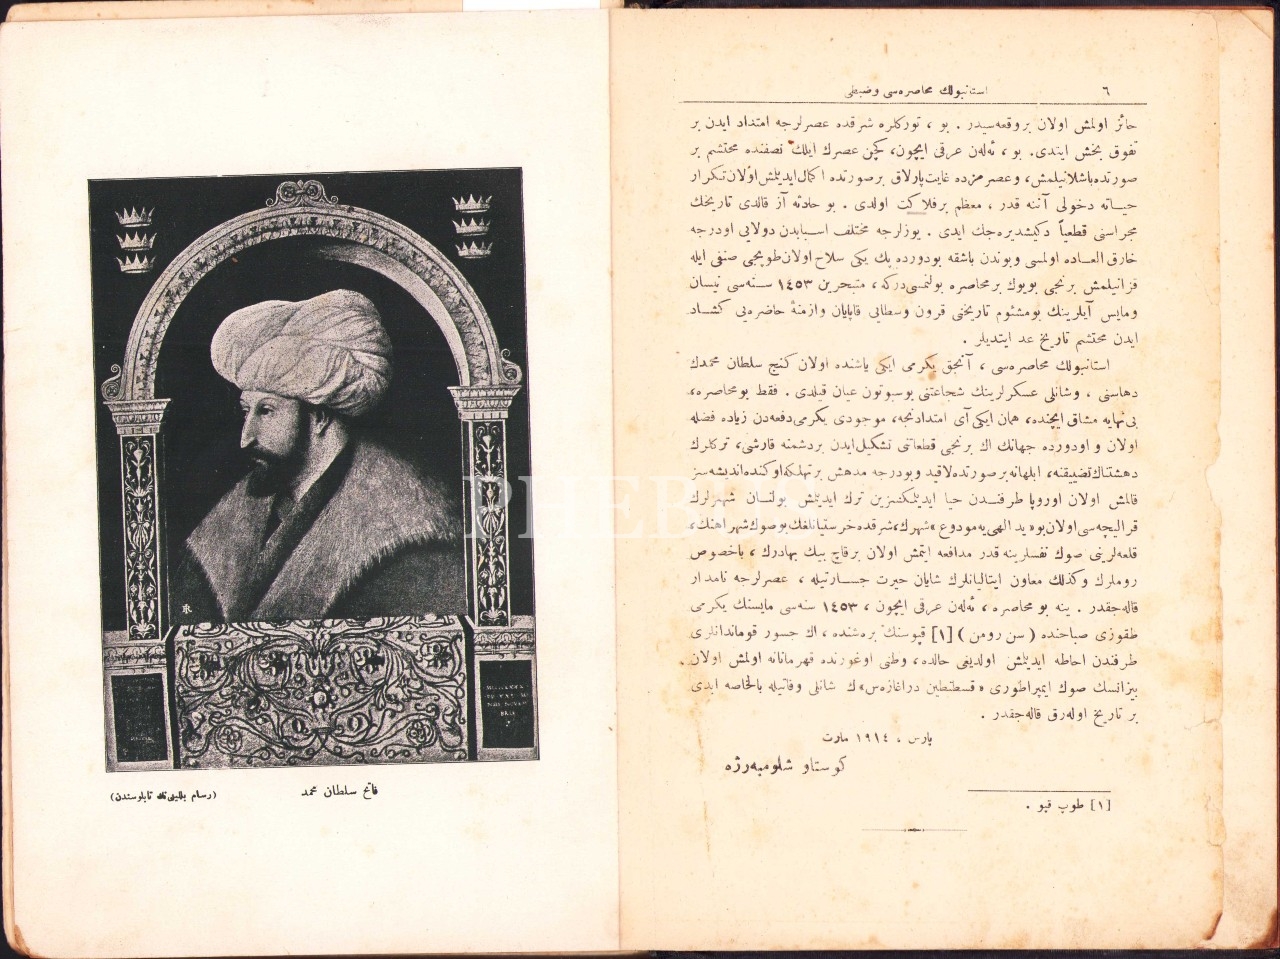 ٦
استانبولك محاصره‌سی وضبطی
حائز اولمش اولان بروقعه‌سیدر . بو ، تورکلره شرقده عصرلرجه امتداد ایدن بر
تفوق بخش ایتدی. بو ، ئه‌له‌ن عرقی ایچون، کچن عصرك ایلك نصفنده محتشم بر
صورتده باشلانیلمش، و عصرمزده غایت پارلاق برصورتده اکمال ایدیلمش اولان تکرار
حیاته دخولی آننه قدر ، معظم برفلاکت اولدی . بو حادثه آز قالدی تاریخك
مجراسنی قطعیاً دکیشدیره‌جك ایدی . یوزلرجه مختلف اسبابدن دولایی اودرجه
خارق العاده اولمسی و بوندن باشقه بودورده پك یکی سلاح اولان طوپجی صنفی ایله
قزانیلمش برنجی بویوك بر محاصره بولنمسی‌درکه، متبحرین ١٤٥٣ سنه‌سی نیسان
ومایس آیلرینك بومشئوم تاریخنی قرون وسطایی قاپایان وازمنهٔ حاضره‌یی کشاد
ایدن محتشم تاریخ عد ایتدیلر .
استانبولك محاصره‌سی ، آنجق یکرمی ایکی یاشنده اولان کنج سلطان محمدك
دهاسنی ، وشانلی عسکرلرینك شجاعتنی بوسبوتون عیان قیلدی . فقط بومحاصره،
بی‌نهایه مشاق ایچنده، همان ایکی آی امتدادنجه، موجودی یکرمی‌دفعه‌دن زیاده فضله
اولان و اودورده جهانك اك برنجی قطعاتی تشکیل‌ایدن بردشمنه قارشی، ترکلرك
دهشتناك تضییقنه، ابلهانه برصورتده لاقید وبودرجه مدهش برتهلکه‌اوکنده اندیشه‌سز
قالمش اولان اوروپا طرفندن حیا ایدیلمکسزین ترك ایدیلمش بولنان شهرلرك
قرالیچه‌سی اولان بو «ید الهی‌یه مودوع» شهرك، شرقده خرستیانلغك بوصوك شهراهنك،
قلعه‌لرینی صوك نفسلرینه قدر مدافعه ایتمش اولان برقاچ بیك بهادرك ، باخصوص
روملرك وکذلك معاون ایتالیانلرك شایان حیرت جسارتیله ، عصرلرجه نامدار
قاله‌جقدر . ینه بو محاصره ، ئه‌له‌ن عرقی ایچون ، ١٤٥٣ سنه‌سی مایسنك یکرمی
طقوزی صباحنده ( سن رومن ) [١] قپوسنك بره‌شنده ، اك جسور قوماندانلری
طرفندن احاطه ایدیلمش اولدیغی حالده، وطنی اوغورنده قهرمانانه اولمش اولان
بیزانسك صوك ایمپراطوری «قسطنطین دراغازه‌س» ك شانلی وفاتیله بالخاصه ابدی
بر تاریخ اوله‌رق قاله‌جقدر .
پارس ، ١٩١٤ مارت
کوستاو شلومبه‌رژه
[١] طوپ قپو .
فاتح سلطان محمد
(رسام بللینی‌نك تابلوسندن)
PHEBUS